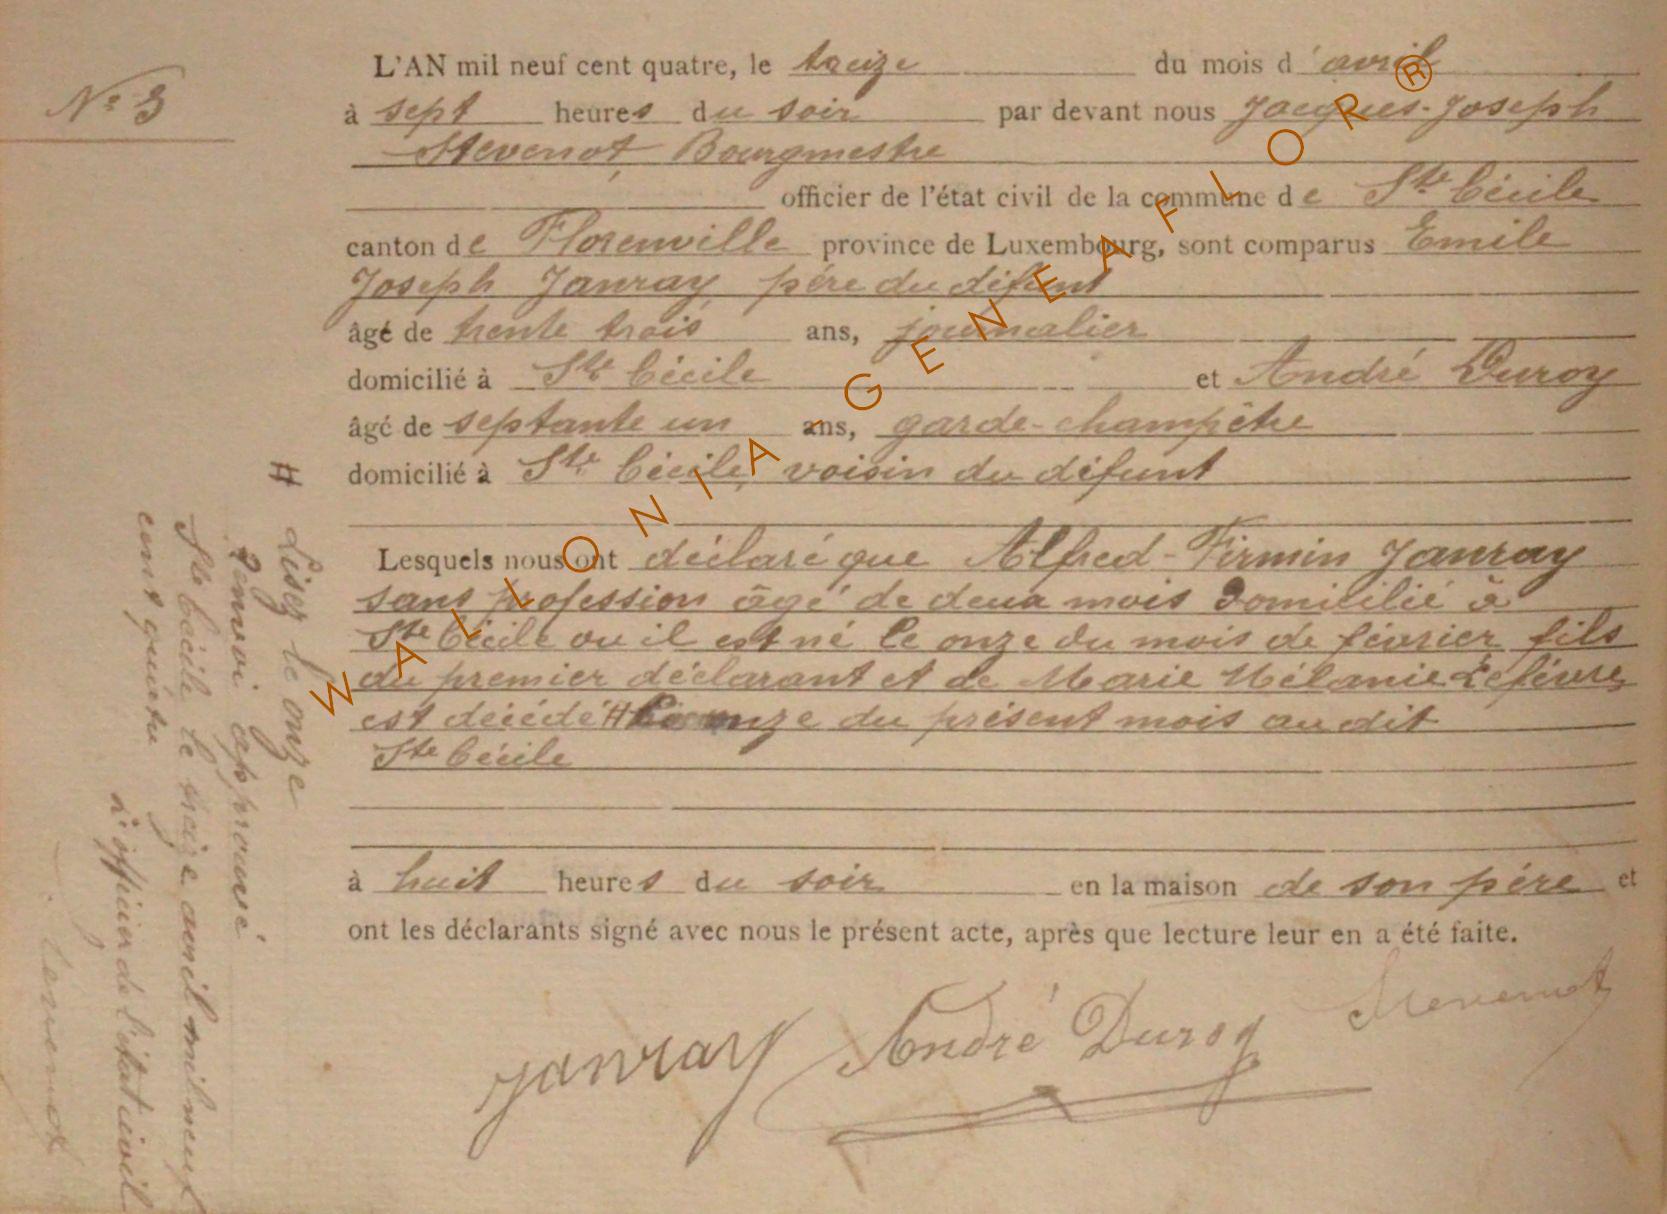 Nº 3
L'AN mil neuf cent quatre, le treize du mois d'avril
à sept heures du soir par devant nous Jacques-Joseph
Stevenot, Bourgmestre
officier de l'état civil de la commune de Ste Cécile
canton de Florenville province de Luxembourg, sont comparus Emile
Joseph Janray père du défunt
âgé de trente trois ans, journalier
domicilié à Ste Cécile et André Duroy
âgé de septante un ans, garde-champêtre
domicilié à Ste Cécile, voisin du défunt
Lesquels nous ont déclaré que Alfred-Firmin Janray
sans profession âgé de deux mois domicilié à
Ste Cécile ou il est né le onze du mois de février fils
du premier déclarant et de Marie Mélanie Lefèvre,
est décédé # Le onze du présent mois au dit
Ste Cécile
à huit heures du soir en la maison de son père et
ont les déclarants signé avec nous le présent acte, après que lecture leur en a été faite.
Janray André Duroy Stevenot
# Lisez le onze
Renvoi approuvé
Ste Cécile le treize avril mil neuf
cent quatre
L'officier de l'état civil
Stevenot
WALLONIA-GENEAFLOR®